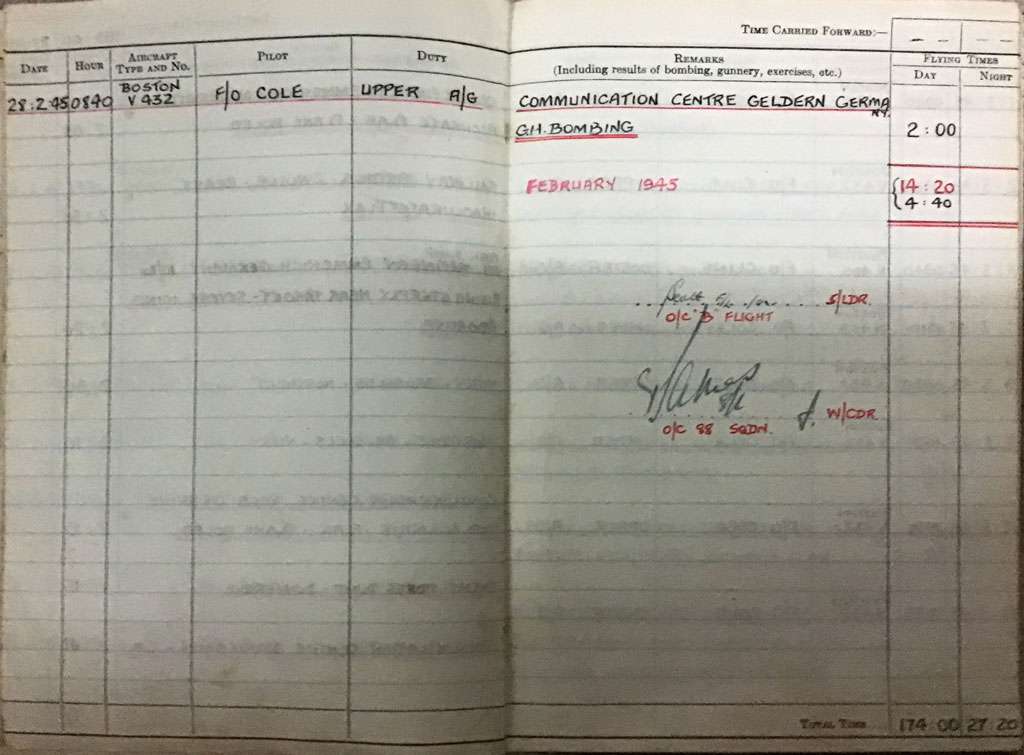 TIME CARRIED FORWARD:— – – – –
DATE HOUR AIRCRAFT TYPE AND NO. PILOT DUTY REMARKS (Including results of bombing, gunnery, exercises, etc.) FLYING TIMES DAY NIGHT
28.2.45 0840 BOSTON V 432 F/O COLE UPPER A/G COMMUNICATION CENTRE GELDERN GERMANY.
G.H. BOMBING 2:00
FEBRUARY 1945 14:20
4:40
S/LDR.
O/C "B" FLIGHT
W/CDR.
O/C 88 SQDN.
TOTAL TIME 174·00 27·20